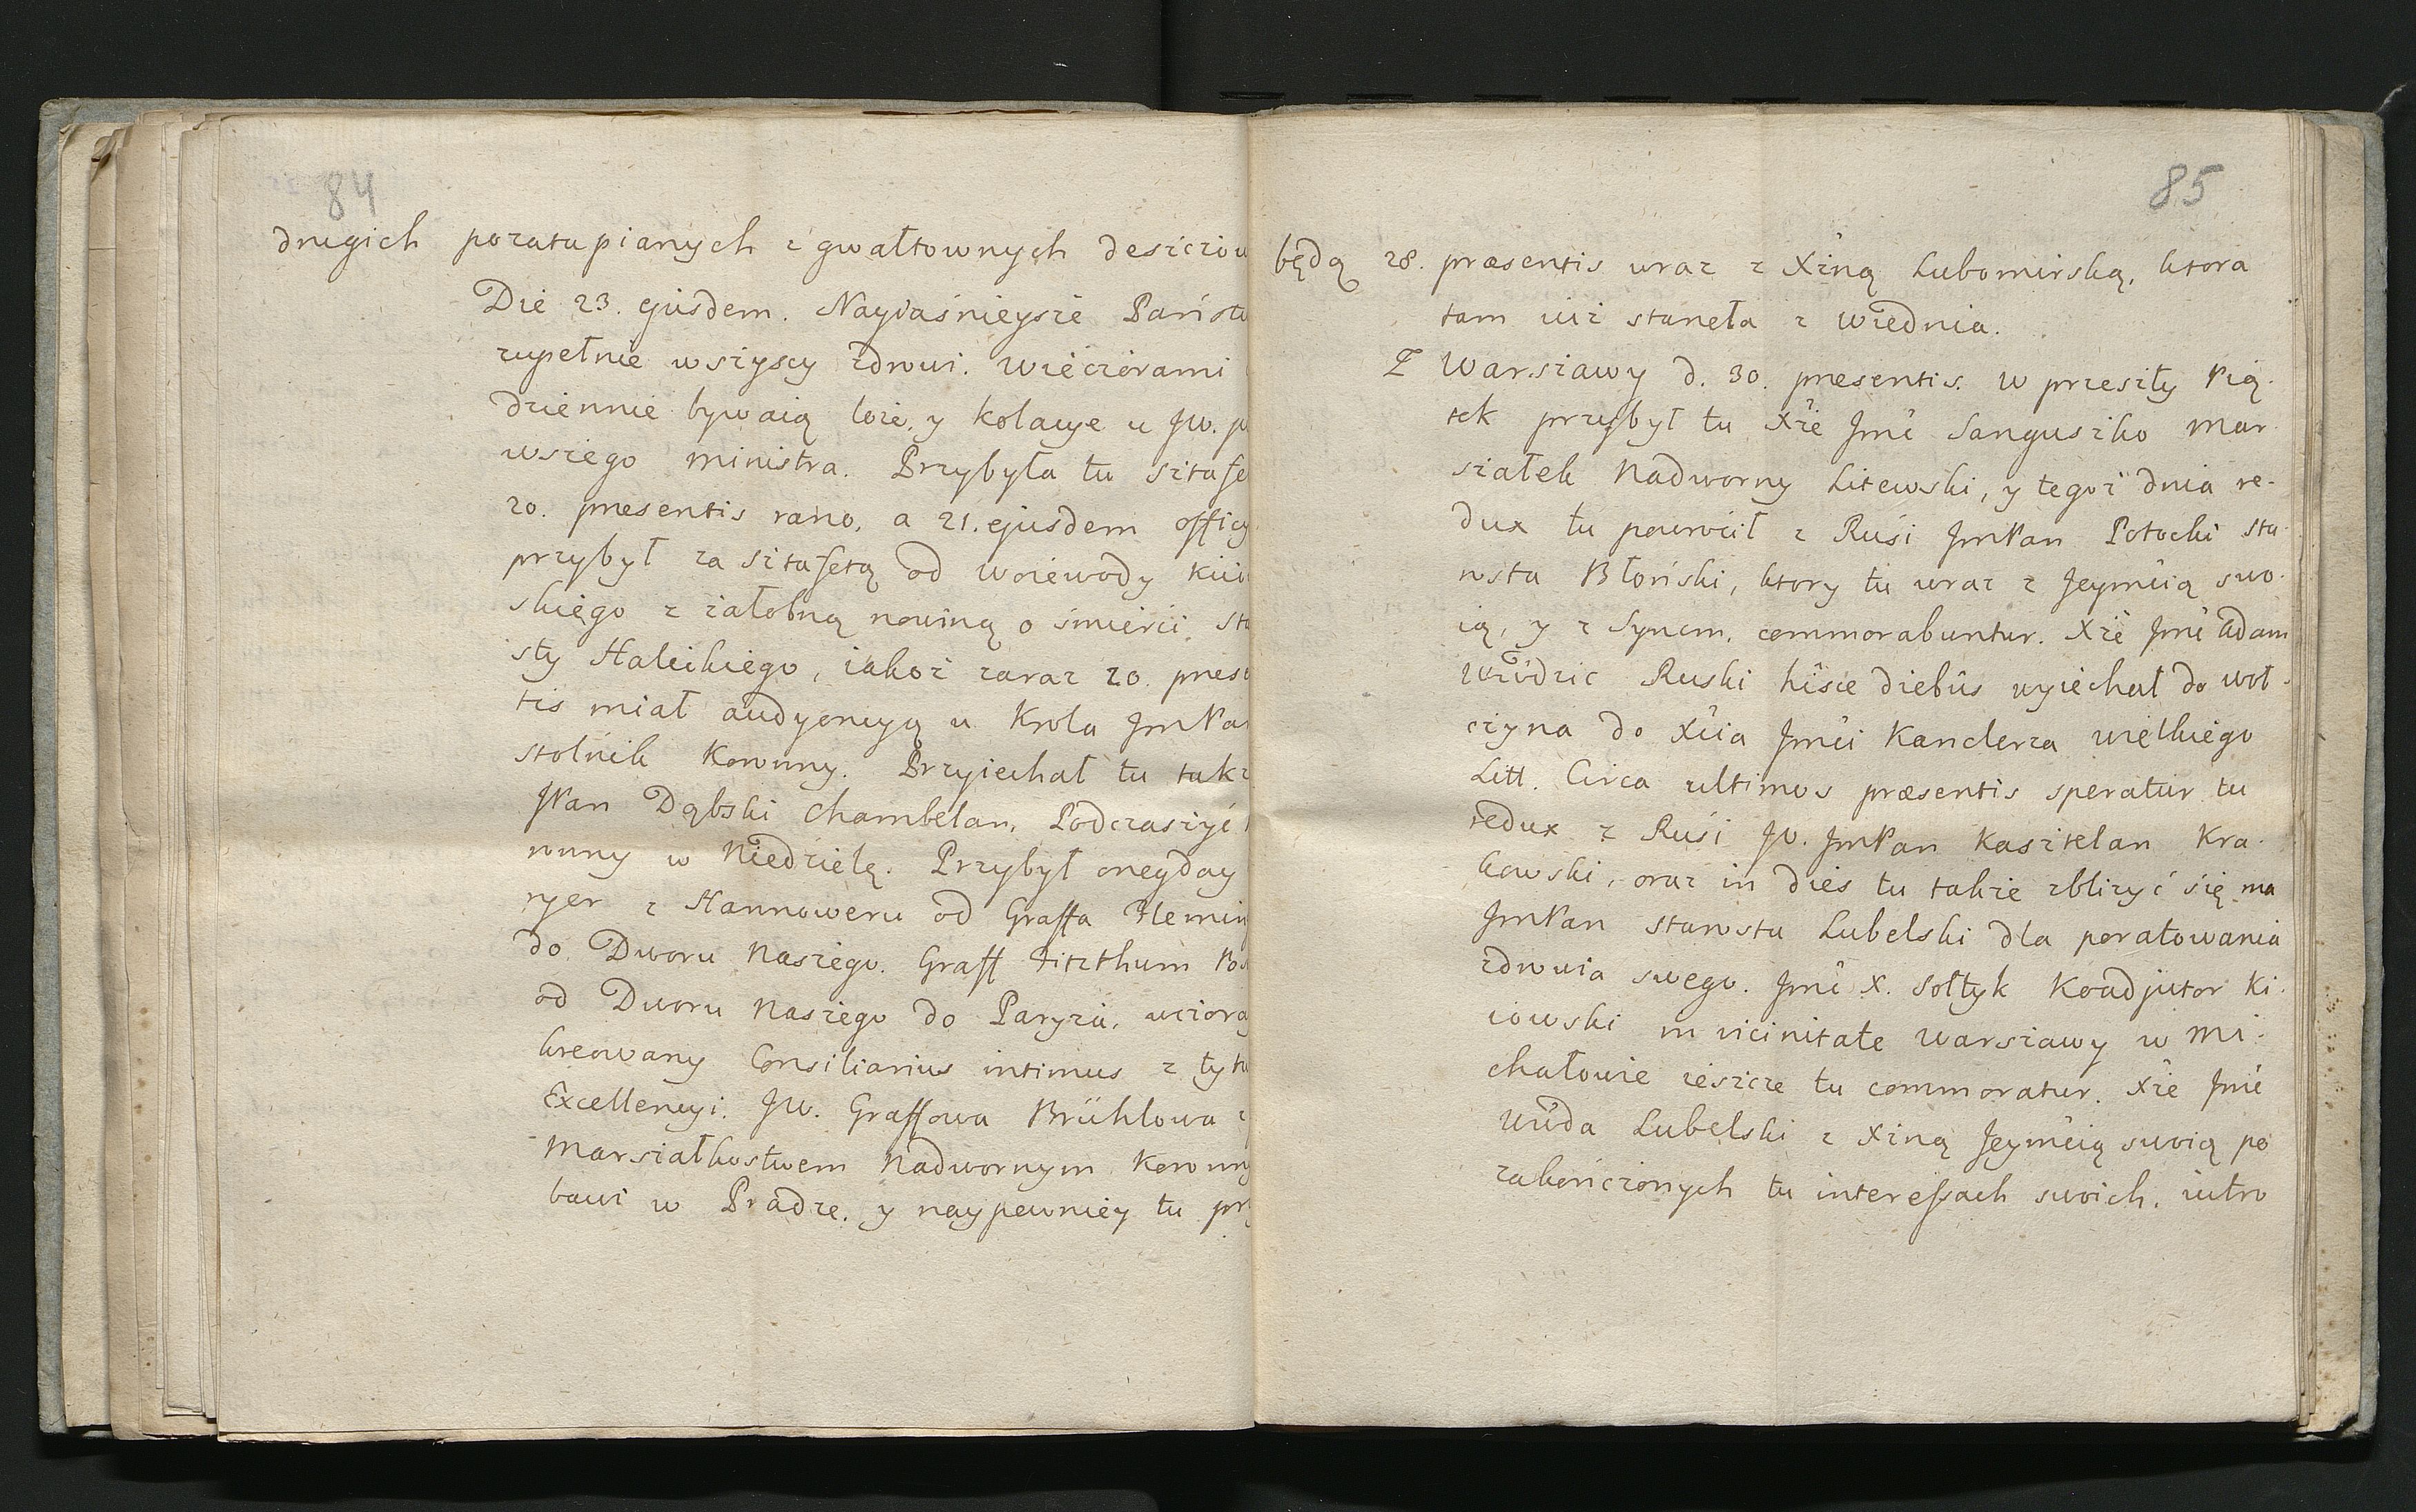 84
drugich pozatapianych z gwałtownych deszczow
Die 23. ejusdem. Nayiaśnieysze Państw
zupełnie wszyscy zdrowi. Wieczorami
dziennie bywaią loże, y Kolacye u JW. p
wszego Ministra. Przybyła tu sztafe
20. presentis rano, a 21. ejusdem offic
przybył za sztafetą od Woiewody Kiio
skiego z żałobną nowiną o śmierci Sta
sty Halickiego, iakoż zaraz 20. prese
tis miał audyencyą u Krola JmPan
Stolnik Koronny. Przyiechał tu takż
JPan Dąbski Chambelan, Podczaszyć
ronny w Niedzielę. Przybył onegday
ryer z Hannoweru od Graffa Flemin
do Dworu Naszego. Graff Fitzthum Pos
od Dworu Naszego do Paryża, wczora
kreowany Consiliarius intimus z tytu
Excellencyi. JW. Graffowa Brühlowa z
Marszałkostwem Nadwornym Koronny
bawi w Pradze, y naypewniey tu prz
85
będą 28. præsentis wraz z Xżną Lubomirską, ktora
tam iuż stanęła z Wiednia.
Z Warszawy d. 30. præsentis. W przeszły Pią-
tek przybył tu Xże Jmć Sanguszko Mar-
szałek Nadworny Litewski, y tegoż dnia re-
dux tu powrócił z Rusi JmPan Potocki Sta-
rosta Błoński, ktory tu wraz z Jeymcią swo-
ią, y z Synem, commorabuntur. Xże Jmć Adam
Wdzic Ruski hisce diebus wyiechał do Woł-
czyna do Xcia Jmci Kanclerza wielkiego
Litt. Circa ultimos præsentis speratur tu
redux z Rusi JW. JmPan Kasztelan Kra-
kowski, oraz in dies tu także zbliżyć się ma
JmPan Starosta Lubelski dla poratowania
zdrowia swego. Jmć X. Sołtyk Koadjutor Ki-
iowski in vicinitate Warszawy w Mi-
chałowie ieszcze tu commoratur. Xże Jmć
Wda Lubelski z Xżną Jeymcią swoią po
zakończonych tu interessach swoich, iutro